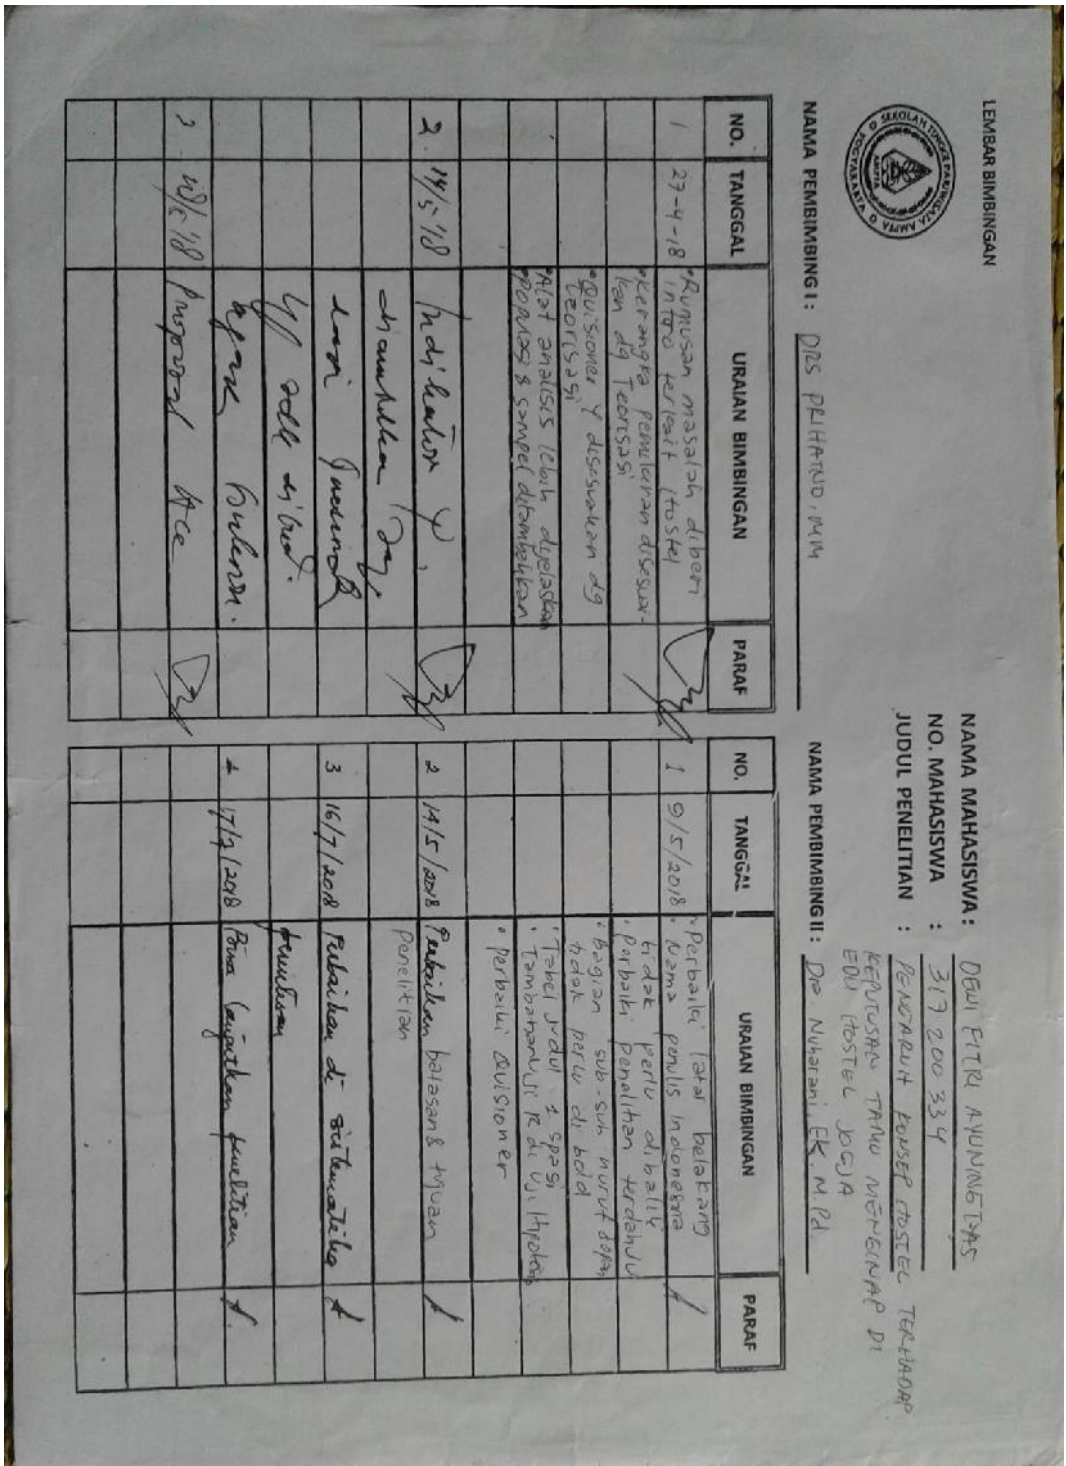 LEMBAR BIMBINGAN
SEKOLAH TINGGI PARIWISATA AMPTA
YOGYAKARTA
AMPTA
NAMA MAHASISWA : DEWI FITRI AYUNINGTYAS
NO. MAHASISWA : 317200334
JUDUL PENELITIAN : PENGARUH KONSEP HOSTEL TERHADAP
KEPUTUSAN TAMU MENGINAP DI
EDU HOSTEL JOGJA
NAMA PEMBIMBING I : DRS PRIHATNO, MM
NO. TANGGAL URAIAN BIMBINGAN PARAF
1 27-4-18 • Rumusan masalah diberi
intro terkait Hostel
• Kerangka pemikiran disesuai-
kan dg Teorisasi
• Quisioner Y disesuaikan dg
teorisasi
• Alat analisis lebih dijelaskan
• Populasi & sampel ditambahkan
2. 14/5 '18 Indikator Y.
dari
agar
Proposal Acc
NAMA PEMBIMBING II : Dra Nuharani, EK. M.Pd.
NO. TANGGAL URAIAN BIMBINGAN PARAF
1 9/5/2018 • Perbaiki latar belakang
• Nama penulis Indonesia
tidak perlu dibalik
• Perbaiki Penelitian terdahulu
• bagian sub-sub huruf depan
tidak perlu di bold
• Tabel judul 1 spasi
• Perbaiki Quisioner
2 14/5/2018 Perbaikan batasan & tujuan
penelitian
3 16/7/2018 Perbaikan di sistematika
penulisan
4 17/7/2018 Bisa lanjutkan penelitian